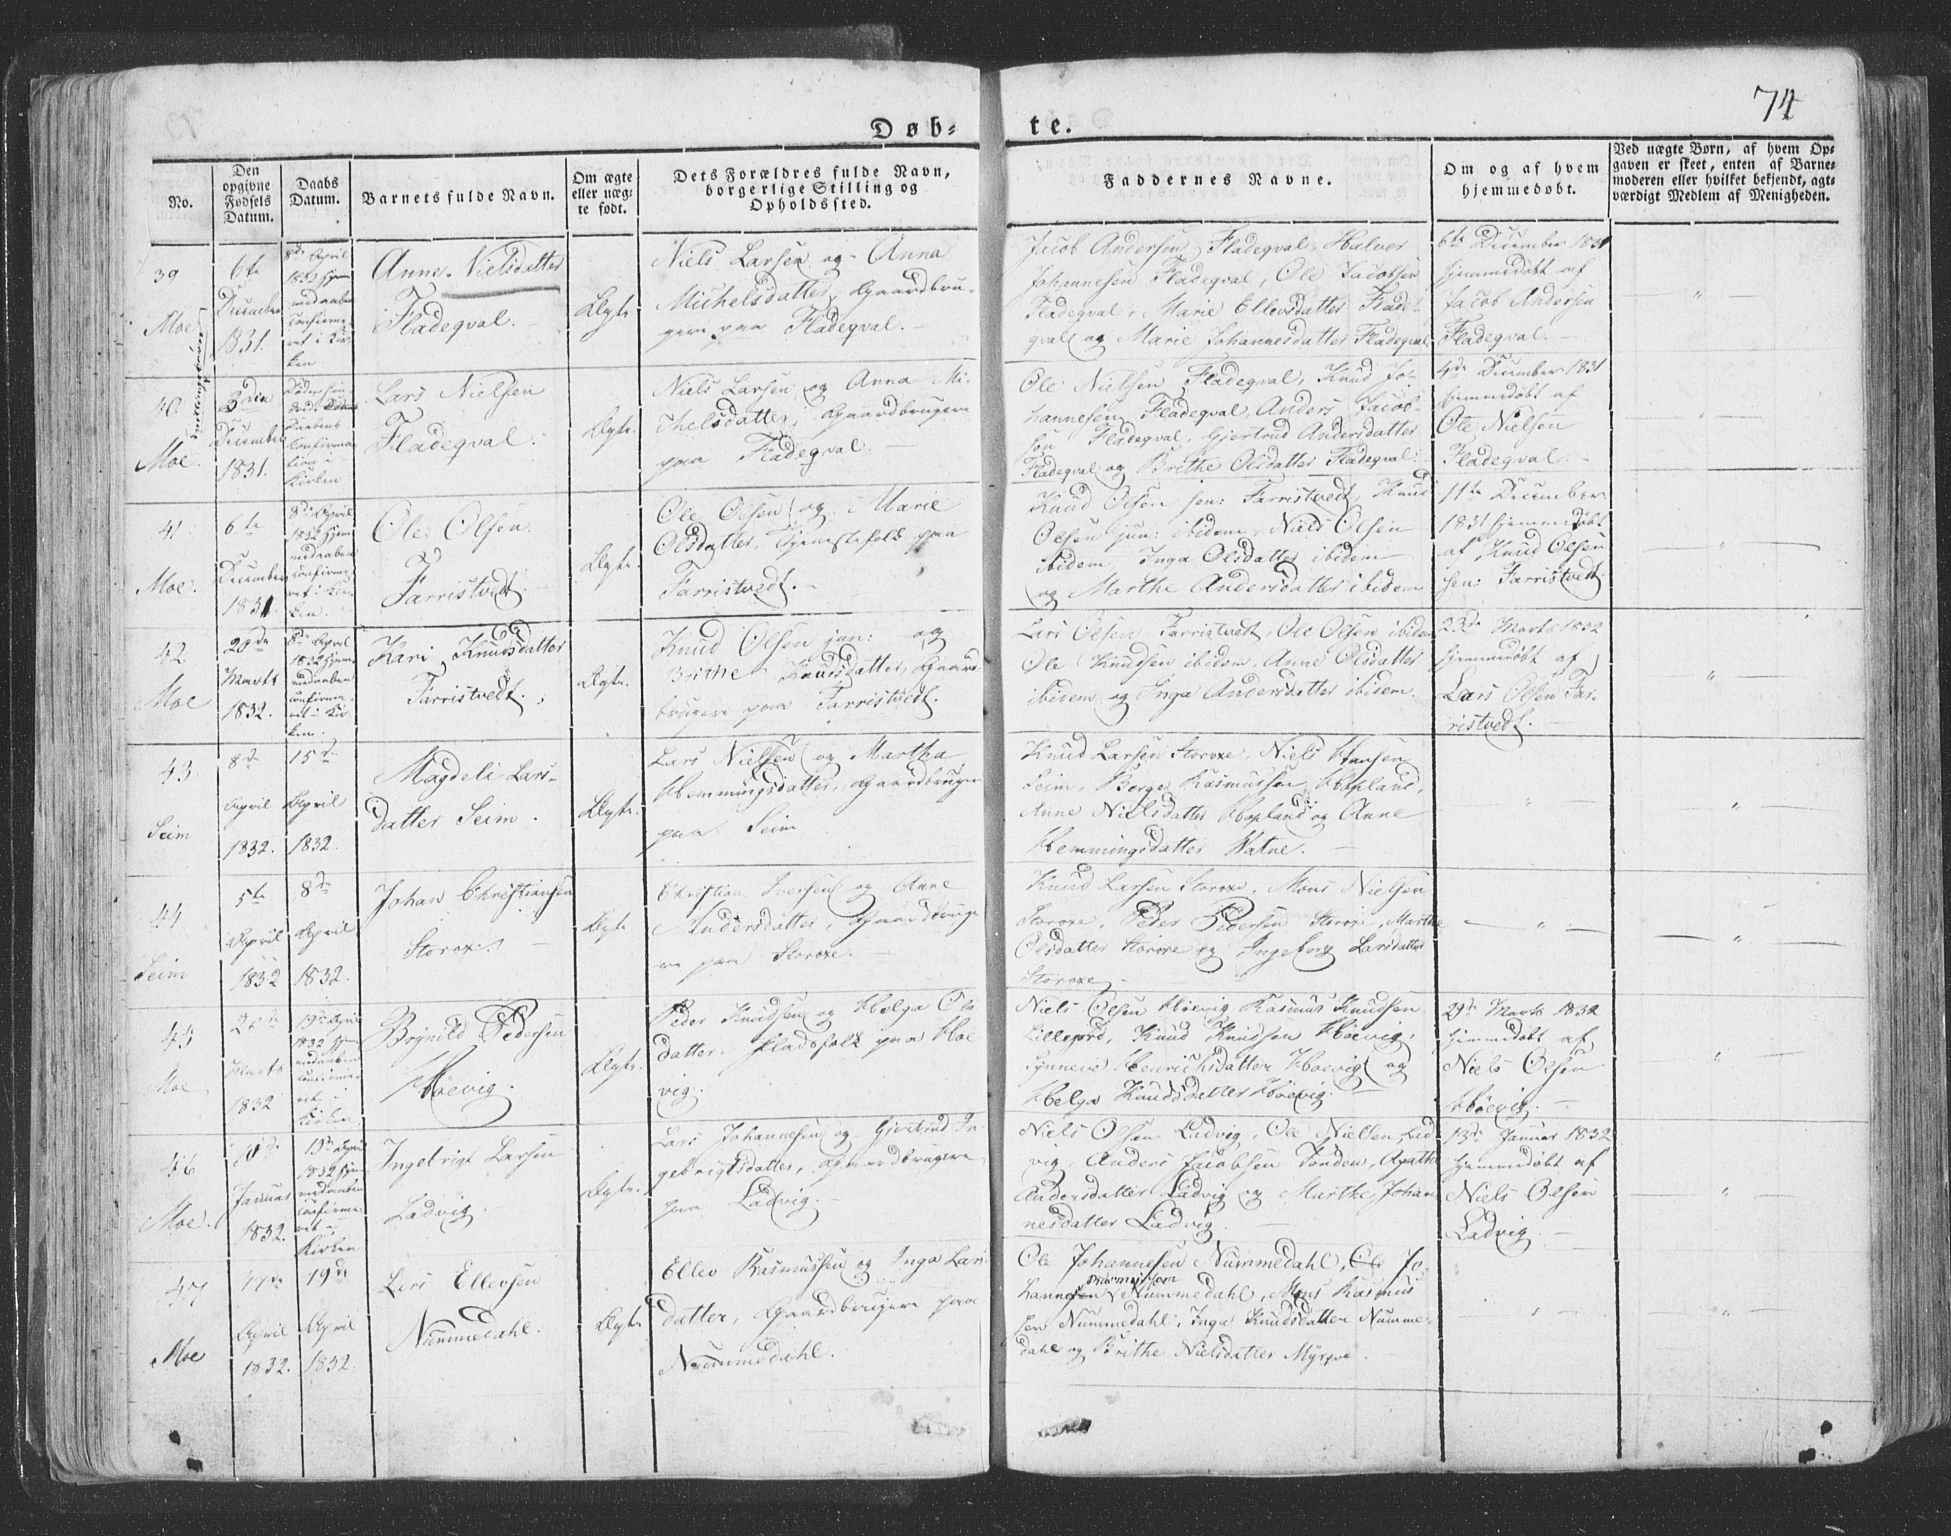 74
Døb-
te.
No.
Den opgivne Fødsels Datum.
Daabs Datum.
Barnets fulde Navn.
Om ægte eller uæg-te født.
Dets Forældres fulde Navn, borgerlige Stilling og Opholdssted.
Faddernes Navne.
Om og af hvem hjemmedøbt.
Ved uægte Børn, af hvem Op-gaven er skeet, enten af Barne-moderen eller hvilket bekjendt, agt-værdigt Medlem af Menigheden.
39
Moe
6te
December
1831.
8de April
1832 hjem
medaaben
confirme-
ret i Kir-
ken
Anne Nielsdatter
Fladeqval.
Ægte
Niels Larsen og Anna
Michelsdatter, Gaardbru-
gere paa Fladeqval.
Jacob Andersen Fladeqval, Halver
Johannesen Fladeqval, Ole Jacobsen
Fladeqval, Marie Ellevsdatter Flade-
qval og Marie Johannesdatter Fladeqval
6te December 1831
hjemmedøbt af
Jacob Andersen
Fladeqval.
40
Moe
3die
December
1831.
confirma-
tion i
Kirken
Lars Nielsen
Fladeqval.
Ægte.
Niels Larsen og Anna Mi-
chelsdatter, Gaardbrugere
paa Fladeqval.
Ole Nielsen Fladeqval, Knud Jo-
hannesen Fladeqval, Anders Jacob-
sen Fladeqval, Gjertrud Andersdatter
Fladeqval og Brithe Olsdatter Fladeqval.
4de December 1831
hjemmedøbt af
Ole Nielsen
Fladeqval.
41
Moe.
6te
December
1831
8de April
1832 hjem
medaaben
confirme-
ret i Kir-
ken.
Ole Olsen
Farristvedt.
Ægte.
Ole Olsen og Marie
Olsdatter, Tjenestefolk paa
Farristvedt.
Knud Olsen sen: Farristvedt, Knud
Olsen jun: ibidem, Niels Olsen
ibidem, Inga Olsdatter ibidem
og Marthe Andersdatter ibidem
11te December
1831 hjemmedøbt
af Knud Olsen
sen: Farristvedt.
42
Moe
20de
Marts
1832.
8de April
1832 hjem
medaaben
confirme-
ret i Kir-
ken.
Kari Knudsdatter
Farristvedt.
Ægte.
Knud Olsen jun: og
Brithe Knudsdatter, Gaard-
brugere paa Farristvedt.
Lars Olsen Farristvedt, Ole Olsen ibidem
Ole Knudsen ibidem, Anne Olsdatter
ibidem og Inga Andersdatter ibidem.
23de Marts 1832
hjemmedøbt af
Lars Olsen Far-
ristvedt.
43
Seim
8de
April
1832.
15de
April
1832.
Magdeli Lars-
datter Seim.
Ægte.
Lars Nielsen og Martha
Hemmingsdatter, Gaardbrugere
paa Seim
Knud Larsen Storoxe, Niels Hansen
Seim, Børge Rasmussen Hopland,
Anne Nielsdatter Hopland og Anne
Hemmingsdatter Watne.
44
Seim
5te
April
1832
8de
April
1832.
Johan Christiansen
Storoxe.
Ægte
Christian Iversen og Anne
Andersdatter, Gaardbruge
re paa Storoxe.
Knud Larsen Storoxe, Mons Nielsen
Storoxe, Peder Pedersen Storoxe, Marthe
Olsdatter Storoxe og Ingeborg Larsdatter
Storoxe
45
Moe
Marts
1832
19de April
1832 hjem
medaaben
confirme-
ret i
Kirken
Brynild Pedersen
Høevig.
Ægte.
Peder Knudsen og Helga Ols
datter, Pladsfolk paa Høe
vig.
Niels Olsen Høevig Rasmus Knudsen
Lillegjerd, Knud Knudsen Høevig,
Synneve Henrichsdatter Høevig og
Helga Knudsdatter Høevig.
29de Marts 1832
hjemmedøbt af
Niels Olsen
Høevig.
46
Moe.
10de
Januar
1832.
19de April
1832 hjem
medaaben
confirme-
ret i
Kirken
Ingebrigt Larsen
Ladvig.
Ægte.
Lars Johannesen og Gjertrud In-
gebrigtsdatter, Gaardbrugere
paa Ladvig.
Niels Olsen Ladvig, Ole Nielsen Lad-
vig, Anders Jacobsen Tonden, Agathe
Andersdatter Ladvig og Marthe Johan
nesdatter Ladvig
13de Januar 1832
hjemmedøbt af
Niels Olsen
Ladvig.
47
Moe
17de
April
1832.
19de
April
1832.
Lars Ellevsen
Nummedahl.
Ægte.
Ellev Rasmussen og Inga Lars
datter, Gaardbrugere paa
Nummedahl.
Ole Johannesen Nummedahl, Ole Jo-
hannesen Nummedahl, Mons Rasmus
sen Nummedahl, Inga Knudsdatter Numme-
dahl og Brithe Nielsdatter Myrqve